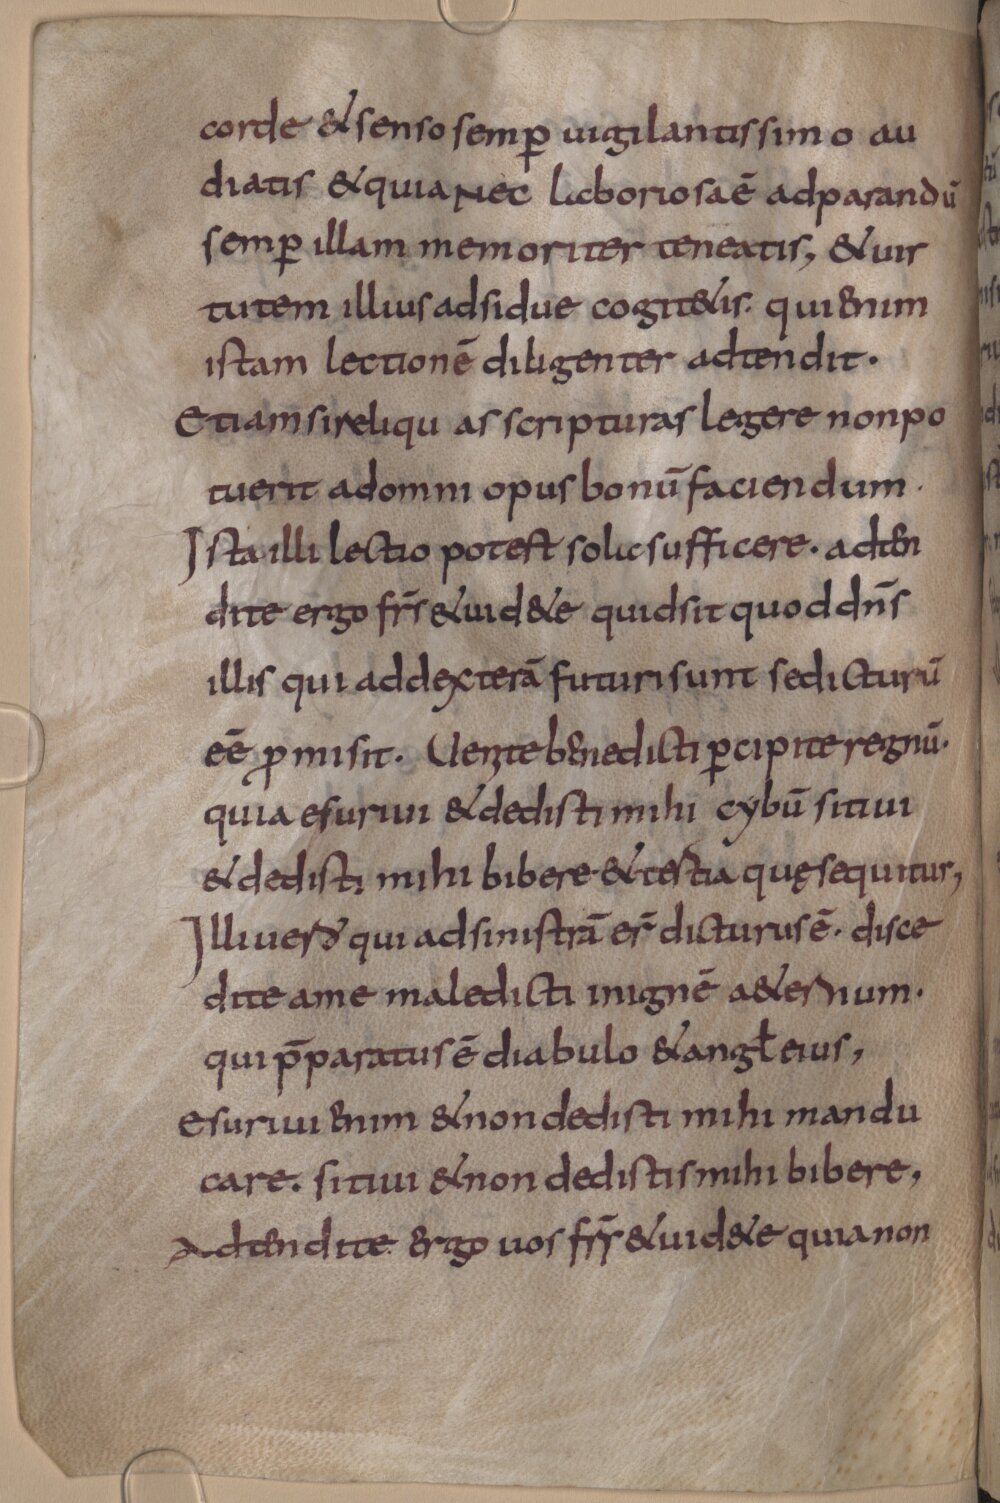 corde & senso semꝑ uigilantissimo au
diatis & quia nec laboriosa ē adparandū
semꝑ illam memoriter teneatis, & uir
tutem illius adsidue cogit&is. qui enim
istam lectionē diligenter adtendit.
Etiam si reliquas scripturas legere non po
tuerit ad omni opus bonū faciendum.
Ista illi lectio potest sola sufficere. adten
dite ergo fr̄s & uid&e quid sit quod dn̄s
illis qui ad dexterā futuri sunt se dicturū
eē ꝓmisit. Uenite benedicti ꝑcipite regnū.
quia esuriui & dedisti mihi cybū sitiui
& dedisti mihi bibere & cetera quę sequitur,
Illi uero qui ad sinistrā er̄ dicturus ē. disce
dite a me maledicti in ignē a&ernum.
qui p̄paratus ē diabulo & angƚ eius,
Esuriui enim & non dedisti mihi mandu
care. sitiui & non dedistis mihi bibere,
Adtendite ergo uos fr̄r & uid&e quia non